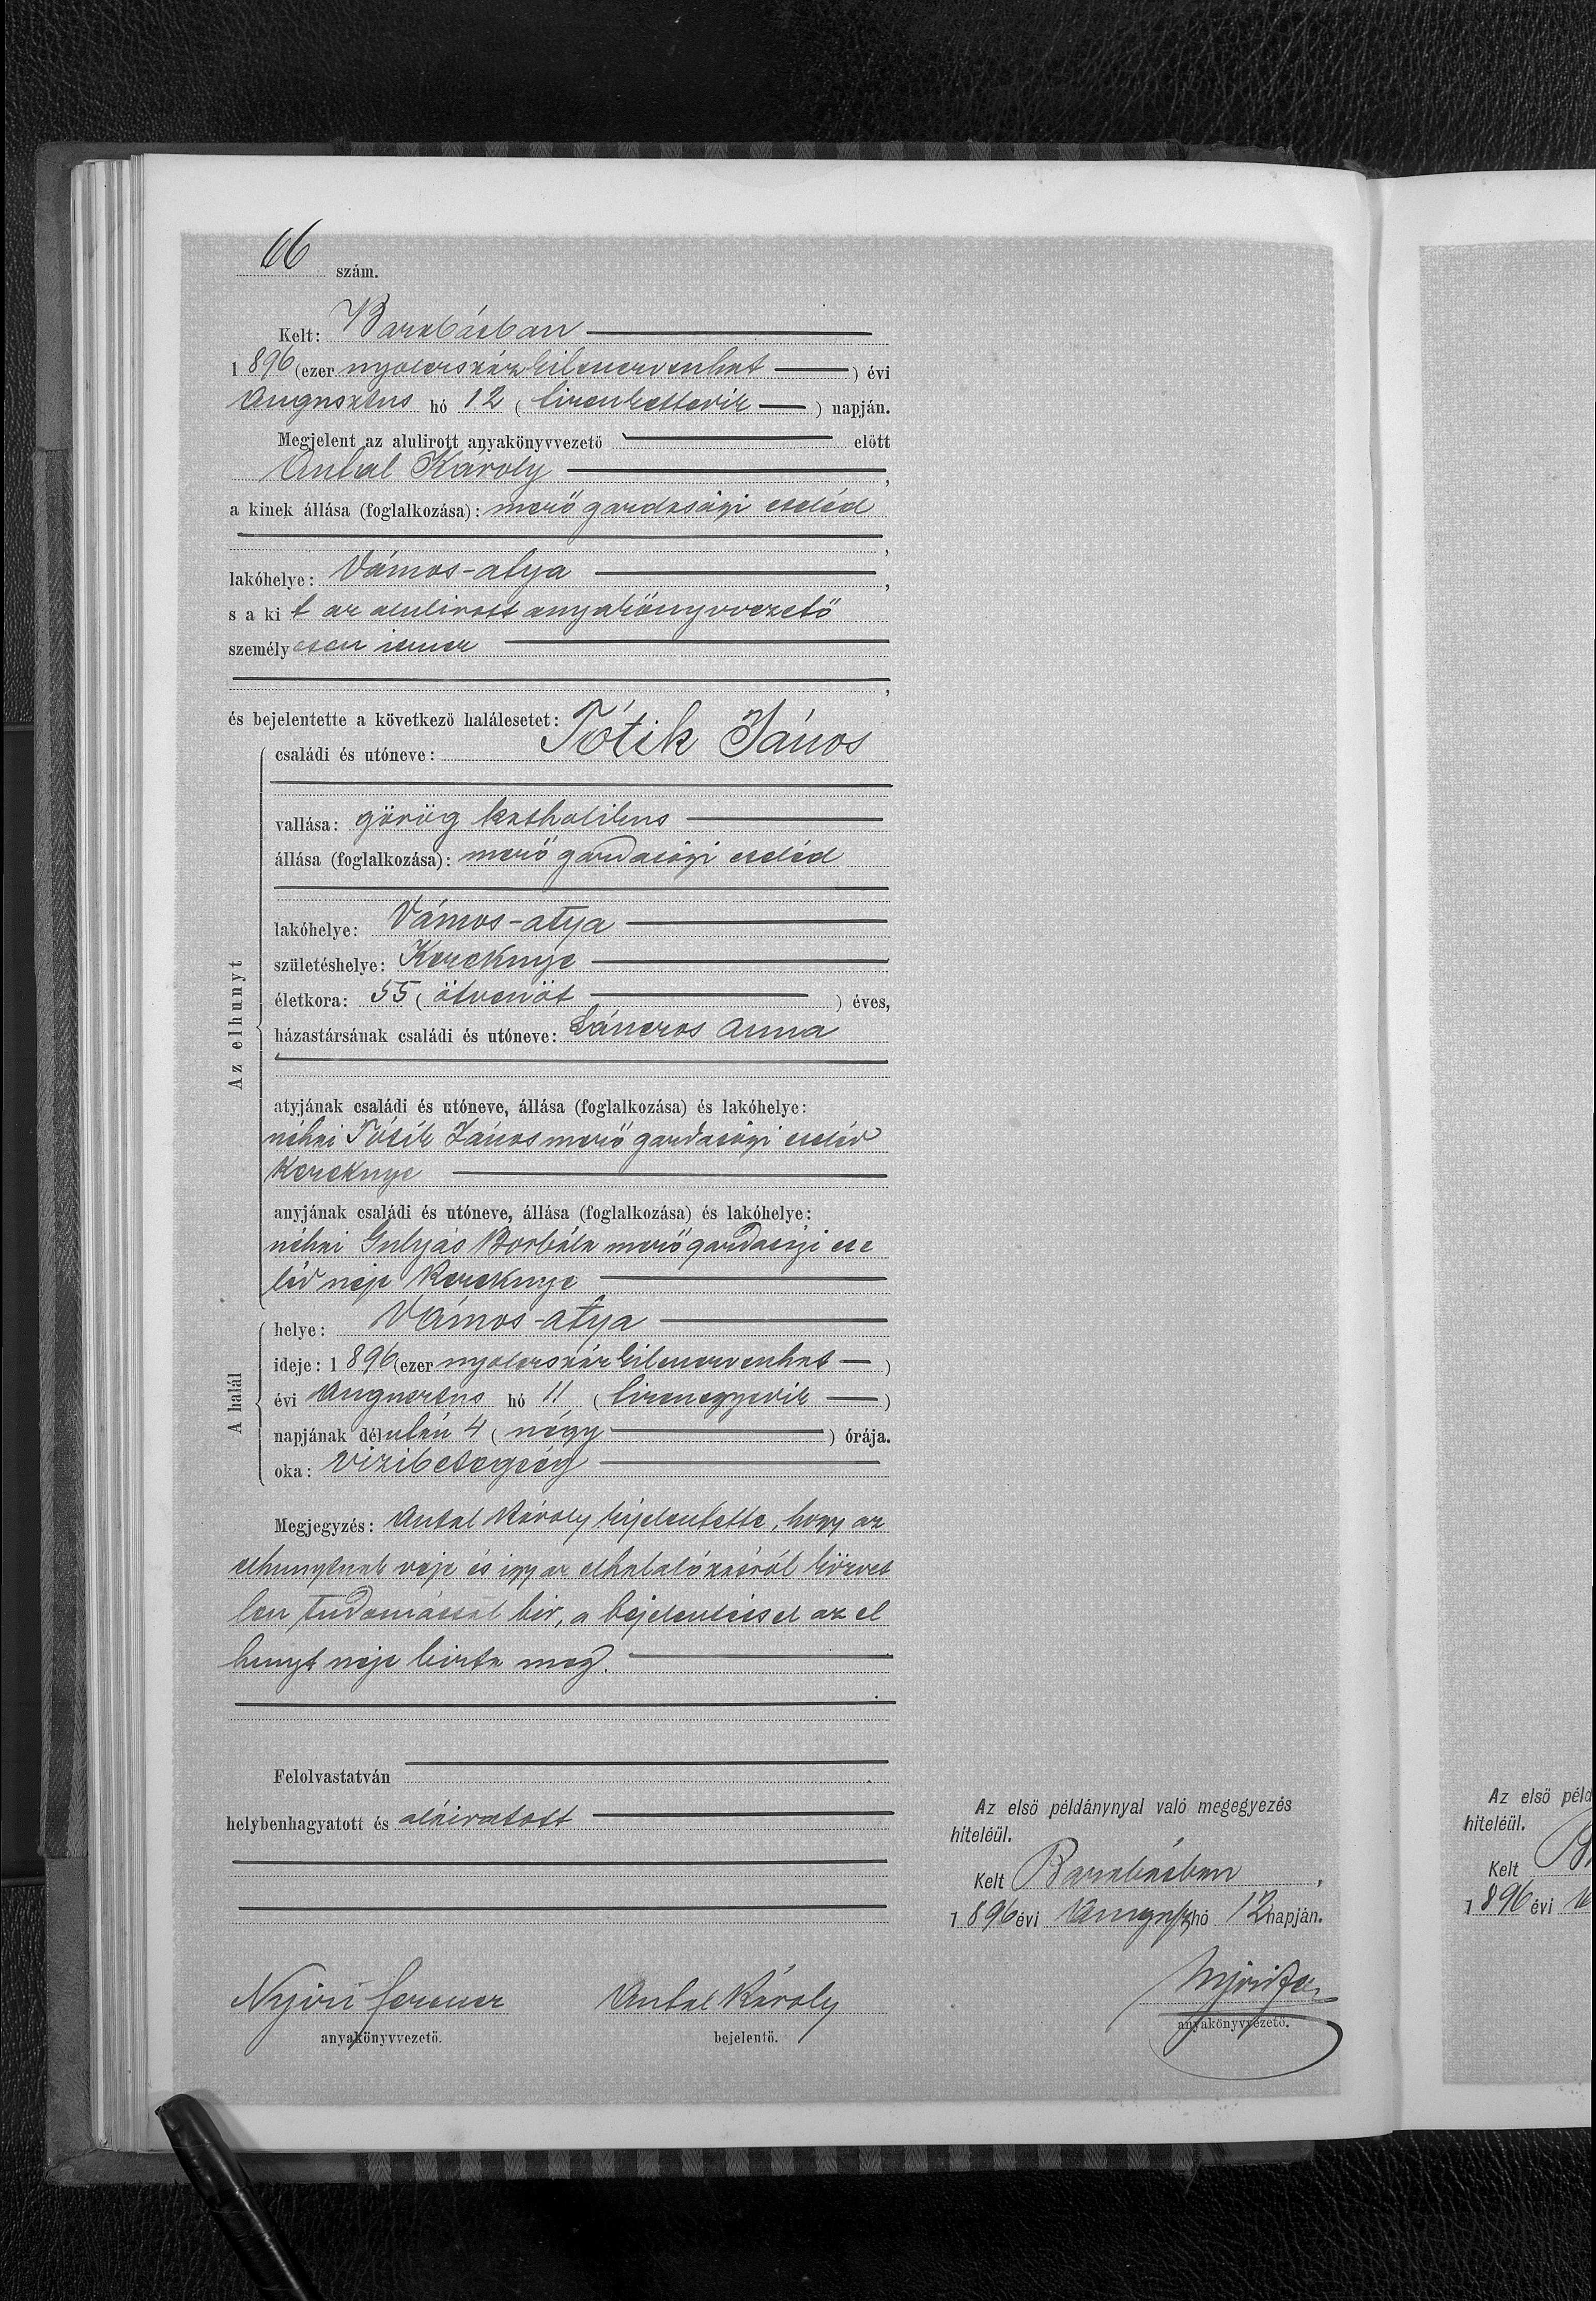 66 szám.
Kelt: Barabásban
1896 (ezer nyolczszázkilenczvenhat) évi
Augusztus hó 12 (tizenkettedik) napján.
Megjelent az alulirott anyakönyvvezető előtt
Antal Károly,
a kinek állása (foglalkozása): mező gazdasági cseléd
,
lakóhelye: Vámos-atya,
s a kit az alulirott anyakönyvvezető
személyesen ismer
,
és bejelentette a következő halálesetet:
családi és utóneve: Tótik János
vallása: görög katholikus
állása (foglalkozása): mező gazdasági cseléd
lakóhelye: Vámos-atya
születéshelye: Kereknye
életkora: 55 (ötvenöt) éves,
házastársának családi és utóneve: Lánczos Anna
Az elhunyt
atyjának családi és utóneve, állása (foglalkozása) és lakóhelye:
néhai Tótik János mező gazdasági cseléd
Kereknye
anyjának családi és utóneve, állása (foglalkozása) és lakóhelye:
néhai Gulyás Borbála mező gazdasági cse
léd neje Kereknye
A halál
helye: Vámos-atya
ideje: 1896 (ezer nyolczszázkilenczvenhat)
évi Augusztus hó 11 (tizenegyedik)
napjának délután 4 (négy) órája.
oka: vizibetegség
Megjegyzés: Antal Károly kijelentette, hogy az
elhunytnak veje és igy az elhalálozásról közvet
len tudomással bir, a bejelentéssel az el
hunyt neje bizta meg.
Felolvastatván
helybenhagyatott és aláiratott
Nyiri Ferencz Antal Károly
anyakönyvvezető. bejelentő.
Az első példánynyal való megegyezés
hiteléül.
Kelt Barabásban,
1896 évi Auguszt hó 12 napján.
Nyiri Fer
anyakönyvvezető.
Az első péld
hiteléül.
Kelt
1896 évi